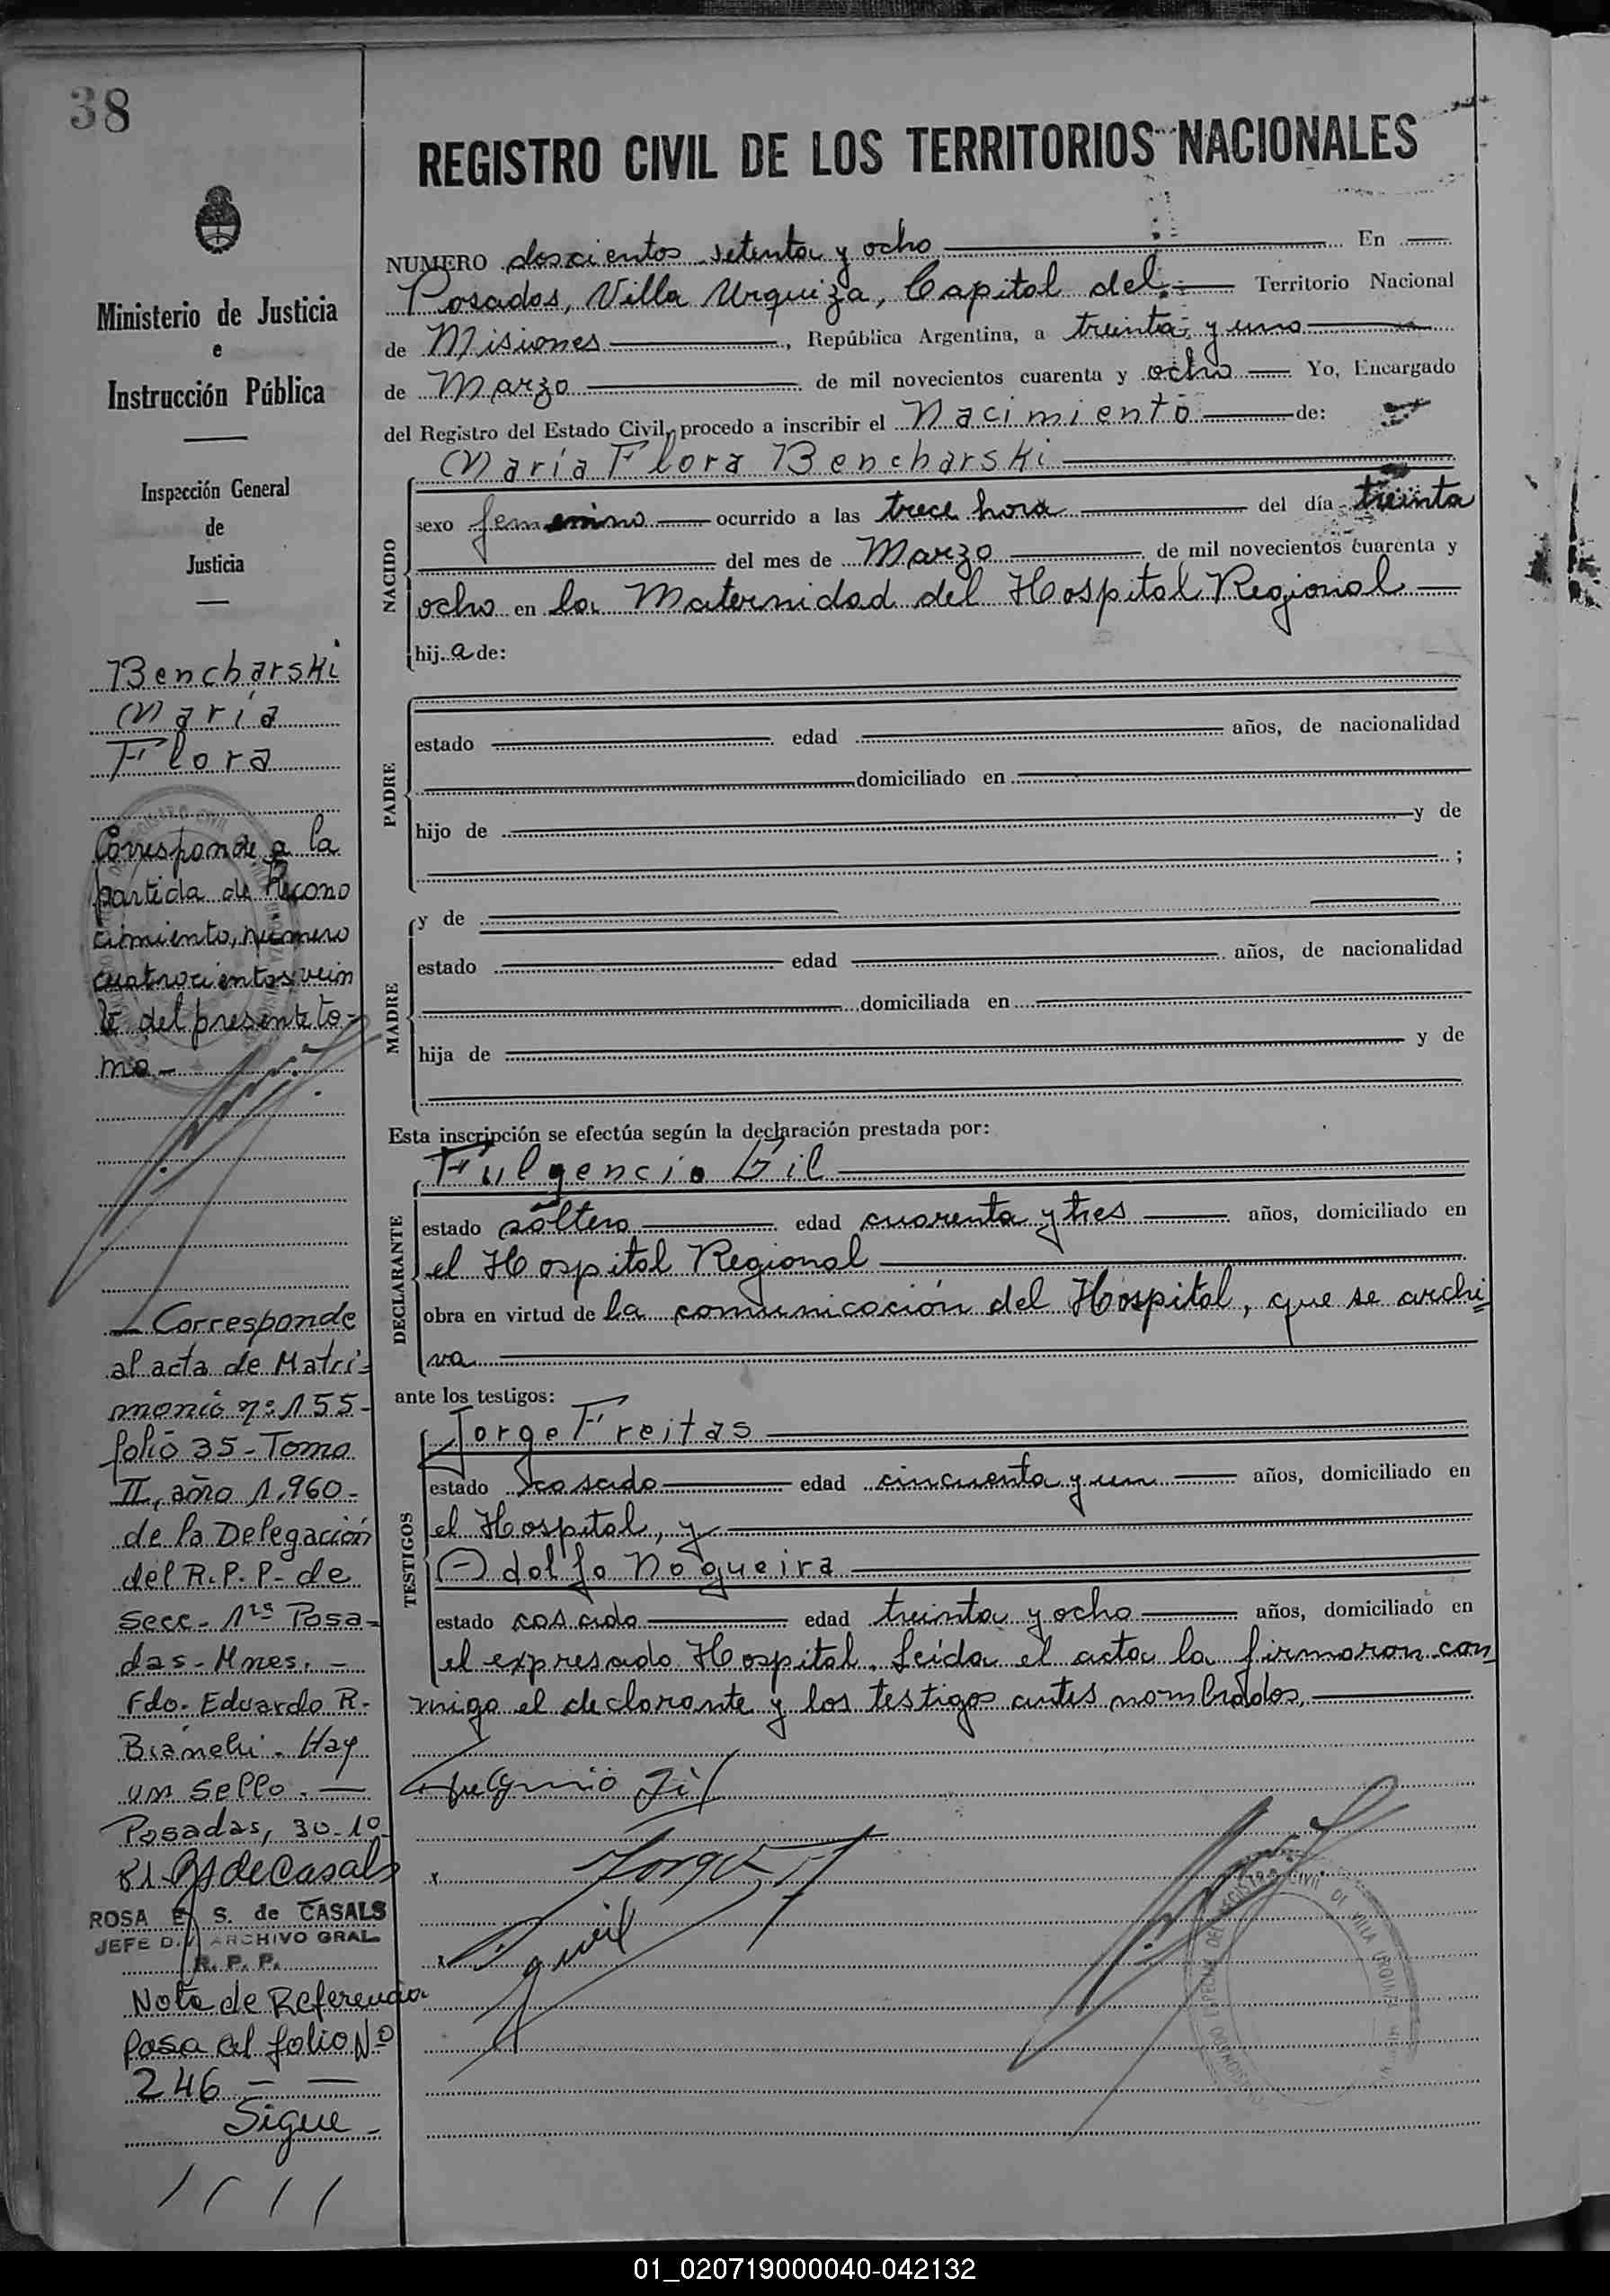 38
Ministerio de Justicia
e
Instrucción Pública
Inspección General
de
Justicia
Bencharski
María
Flora
Corresponde a la
partida de Recono
cimiento, número
cuatrocientos vein
te del presente to-
mo.-
Corresponde
al acta de Matri-
monio nº 155-
folio 35-Tomo
II, año 1.960-
de la Delegación
del R.P.P- de
Secc- 1ra Posa-
das-Mnes.-
Fdo. Eduardo R.
Bianchi. Hay
un sello.
Posadas, 30-10-
81 de Casals
ROSA E. S. de CASALS
JEFE D. ARCHIVO GRAL.
R. P. P.
Nota de Referencia
Pasa al folio Nº
246 = —
Sigue-
REGISTRO CIVIL DE LOS TERRITORIOS NACIONALES
NUMERO doscientos setenta y ocho En
Posadas, Villa Urquiza, Capital del Territorio Nacional
de Misiones, República Argentina, a treinta y uno
de Marzo de mil novecientos cuarenta y ocho Yo, Encargado
del Registro del Estado Civil, procedo a inscribir el Nacimiento de:
María Flora Bencharski
NACIDO
sexo femenino ocurrido a las trece hora del día treinta
del mes de Marzo de mil novecientos cuarenta y
ocho en la Maternidad del Hospital Regional
hij a de:
PADRE
estado edad años, de nacionalidad
domiciliado en
hijo de y de
;
MADRE
y de
estado edad años, de nacionalidad
domiciliada en
hija de y de
Esta inscripción se efectúa según la declaración prestada por:
Fulgencio Gil
DECLARANTE
estado soltero edad cuarenta y tres años, domiciliado en
el Hospital Regional
obra en virtud de la comunicación del Hospital, que se archi-
va
ante los testigos:
Jorge Freitas
TESTIGOS
estado casado edad cincuenta y un años, domiciliado en
el Hospital, y
Adolfo Nogueira
estado casado edad treinta y ocho años, domiciliado en
el expresado Hospital. Leída el acta la firmaron con
migo el declarante y los testigos antes nombrados,
Fulgencio Gil
Jorge F
01_020719000040-042132